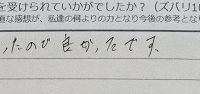 を受けられていかがでしたか？（ズバリ10
直な感想が、私達の何よりの力となり今後の参考とな
ったので良かったです。